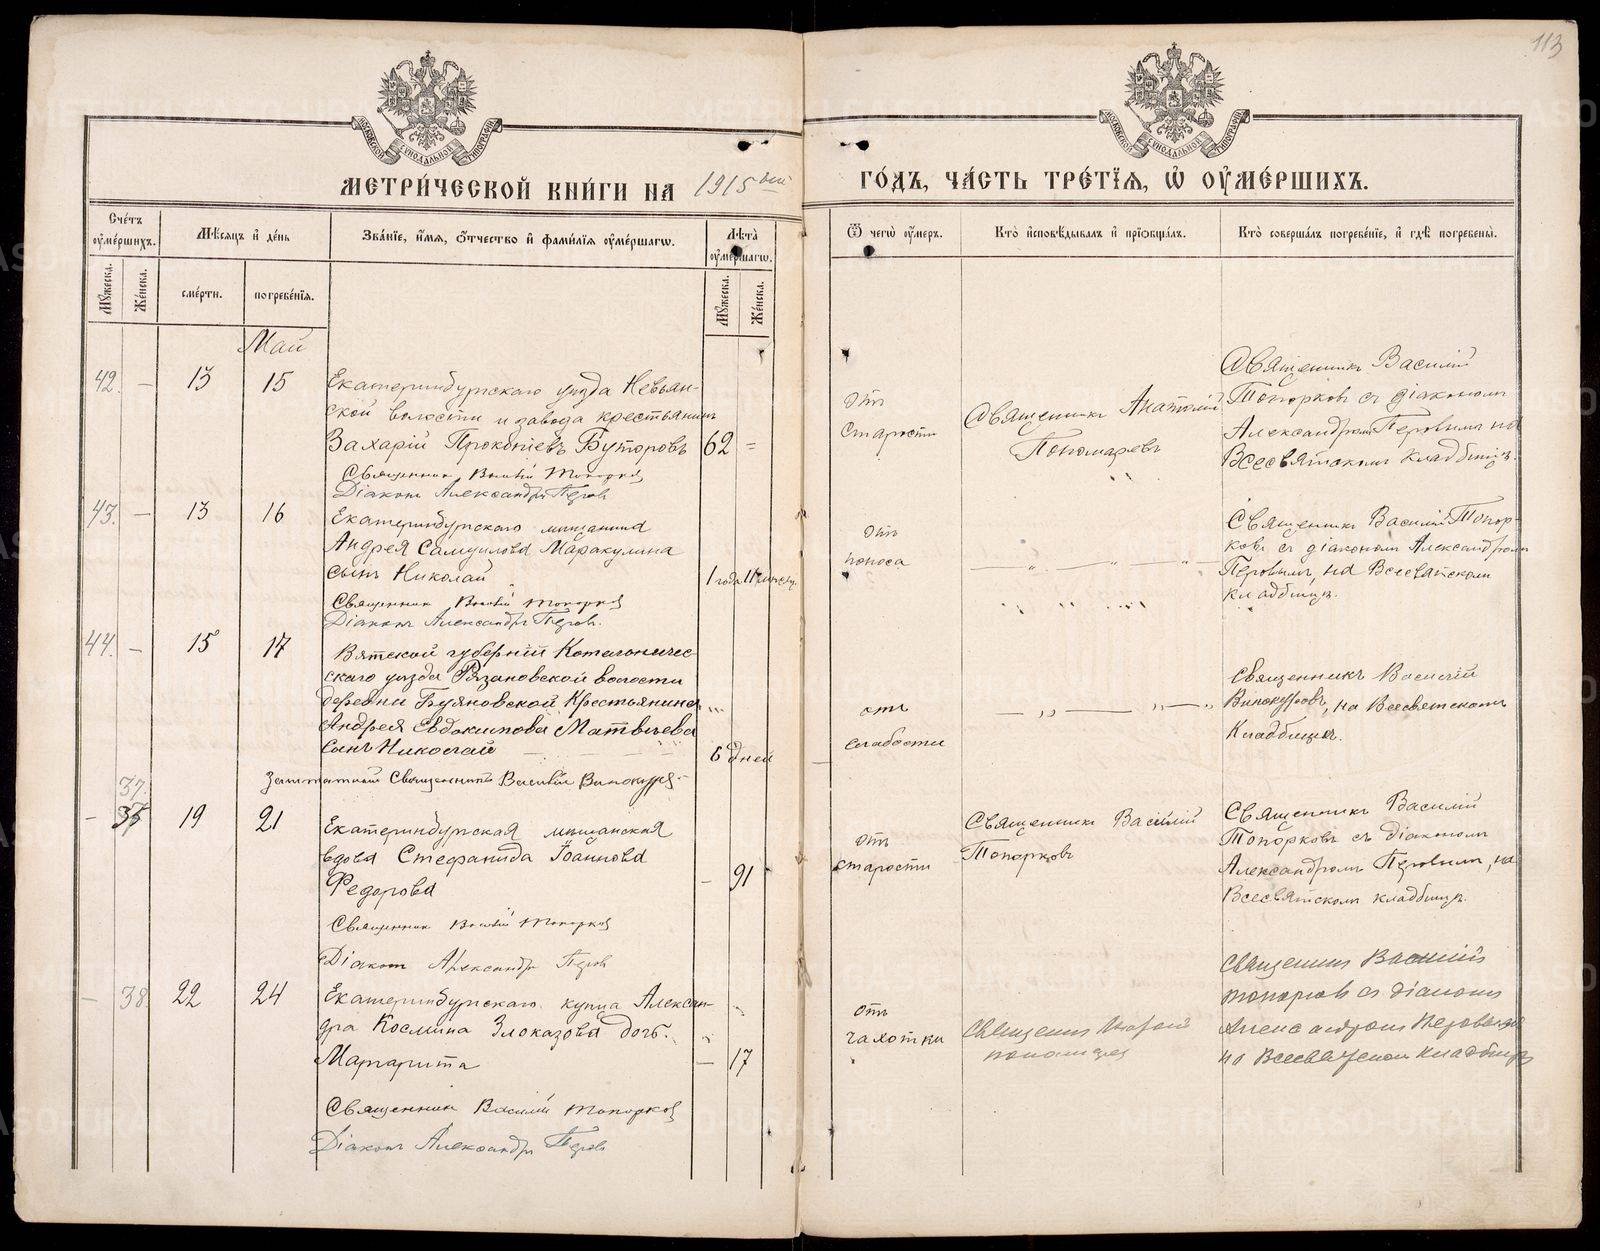 113
МОСКОВСКОЙ СУНОДАЛЬНОЙ ТИПОГРАФІИ
МОСКОВСКОЙ СУНОДАЛЬНОЙ ТИПОГРАФІИ
МЕТРИ́ЧЕСКОЙ КНИ́ГИ НА 1915 ГО́ДЪ, ЧА́СТЬ ТРЕ́ТІѦ, Ѡ҆ ОУ҆МЕ́РШИХЪ.
Сче́тъ оу҆ме́ршихъ.
Мѣ́сѧцъ и҆ де́нь
Зва́нїе, и҆́мѧ, ѻ҆́тчество и҆ фами́лїѧ оу҆ме́ршагѡ.
Лѣ́та оу҆ме́ршагѡ.
Ѿ чегѡ̀ оу҆́меръ.
Кто̀ и҆сповѣ́дывалъ и҆ прїѻбща́лъ.
Кто̀ соверша́лъ погребе́нїе, и҆ гдѣ̀ погребены̀.
Мꙋ́жеска.
Же́нска.
сме́рти.
погребе́нїѧ.
Мꙋ́жеска.
Же́нска.
Май
42. — 13 15
Екатеринбургскаго уѣзда Невьян-
ской волости и завода крестьянинъ
Захарій Прокопіевъ Буторовъ 62 =
Священник Василій Топорков
Діаконъ Александръ Перов
отъ
старости
Священникъ Анатолій
Пономаревъ
Священникъ Василій
Топорковъ съ діакономъ
Александромъ Перовымъ на
Всесвятскомъ кладбищѣ.
43. — 13 16
Екатеринбургскаго мѣщанина
Андрея Самуилова Маракулина
сынъ Николай 1 года
Священник Василій Топорков
Діаконъ Александръ Перов.
отъ
поноса
— „ — — „ —
Священникъ Василій Топор-
ковъ съ діакономъ Александромъ
Перовымъ, на Всесвятскомъ
кладбищѣ.
44. — 15 17
Вятской губерніи Котельничес-
скаго уѣзда Рязановской волости
деревни Бушновской Крестьянина
Андрея Евдокимова Матвѣева
сынъ Николай 6 дней
Заштатный Священникъ Василій Винокуровъ
отъ
слабости
— „ — „ —
Священникъ Василій
Винокуровъ, на Всесвятскомъ
Кладбищѣ.
37.
— 19 21
Екатеринбургская мѣщанская
вдова Стефанида Іоаннова
Федорова — 91
Священник Василій Топорков
Діакон Александръ Перов
отъ
старости
Священникъ Василій
Топорковъ
Священникъ Василій
Топорковъ съ діакономъ
Александромъ Перовымъ, на
Всесвятскомъ кладбищѣ.
— 38 22 24
Екатеринбургскаго купца Алексан-
дра Космина Злоказова дочь.
Маргарита — 17
Священникъ Василій Топорков
Діаконъ Александръ Перов
отъ
чахотки
Священникъ
Священникъ Василій
Топорков съ діакономъ
Александромъ Перовымъ
на Всесвятскомъ кладбищѣ
METRIKI.GASO-URAL.RU